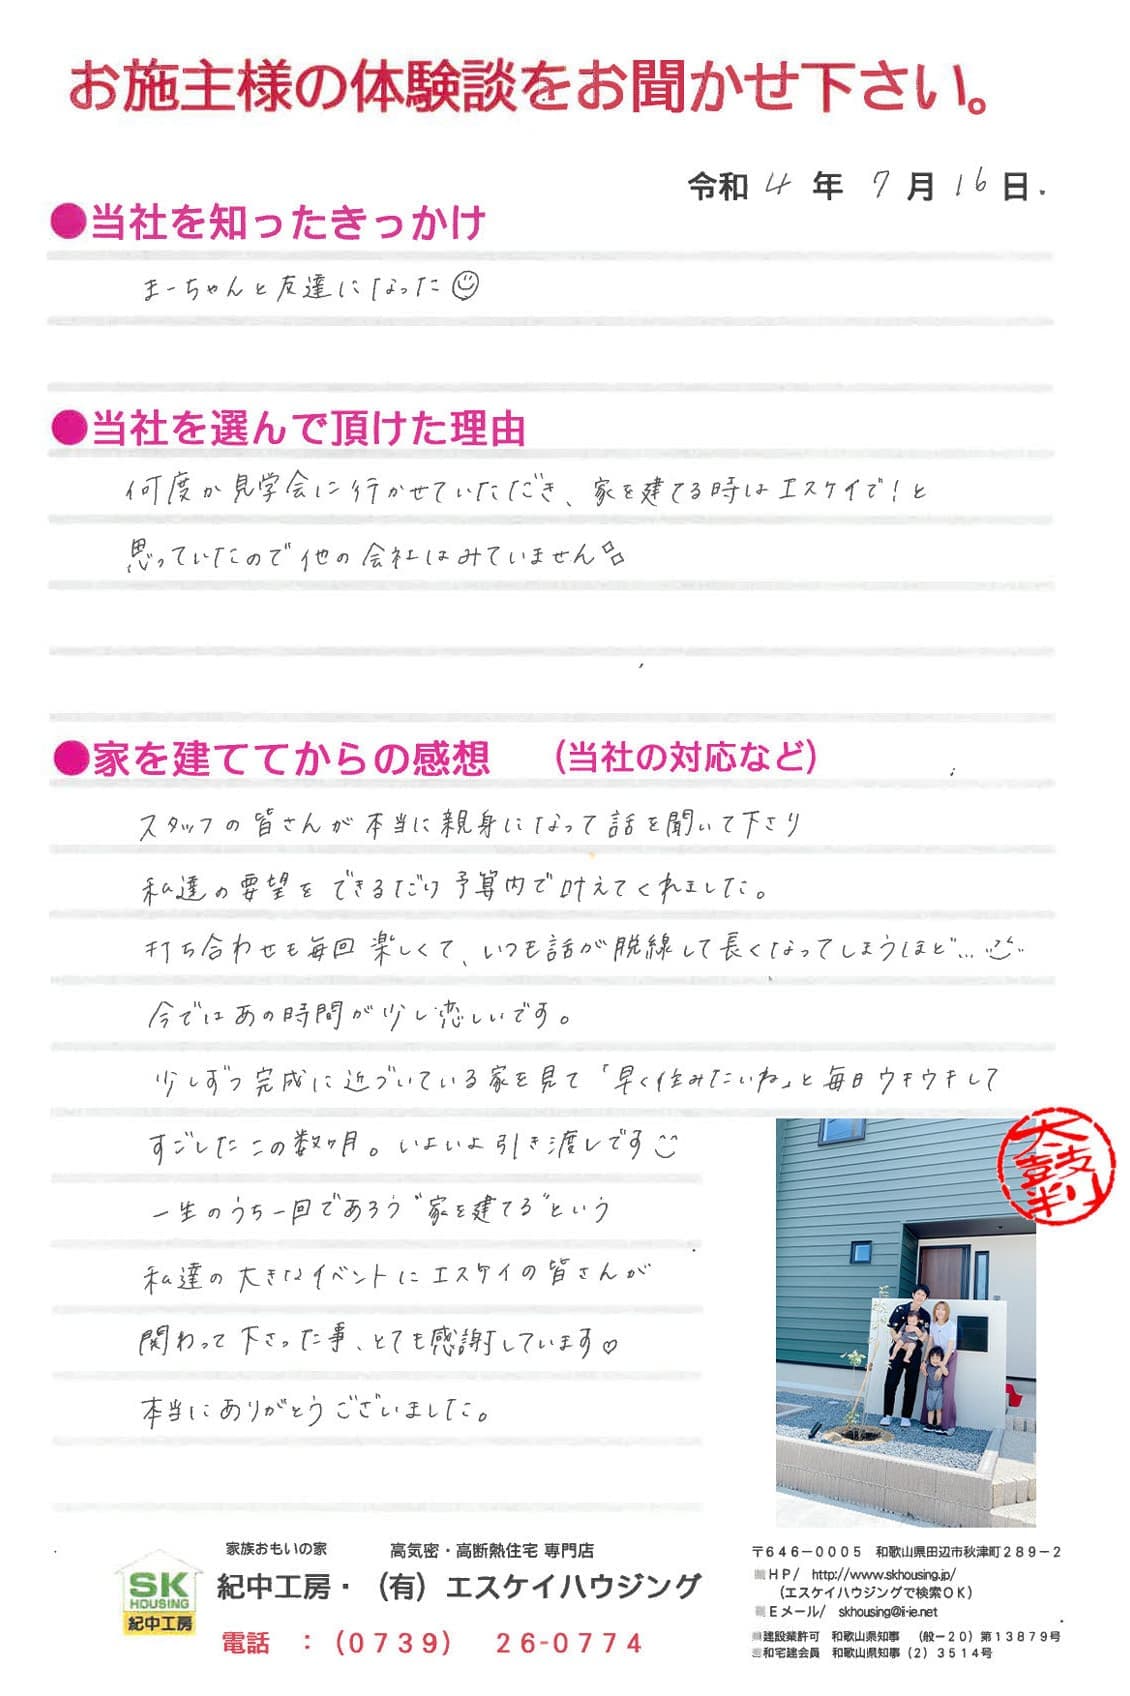 お施主様の体験談をお聞かせ下さい。
令和 4 年 7 月 16 日.
●当社を知ったきっかけ
まーちゃんと友達になった☺
●当社を選んで頂けた理由
何度か見学会に行かせていただき、家を建てる時はエスケイで!と
思っていたので他の会社はみていません
●家を建ててからの感想 (当社の対応など)
スタッフの皆さんが本当に親身になって話を聞いて下さり
私達の要望をできるだけ予算内で叶えてくれました。
打ち合わせも毎回楽しくて、いつも話が脱線して長くなってしまうほど…
今ではあの時間が少し恋しいです。
少しずつ完成に近づいている家を見て「早く住みたいね」と毎日ウキウキして
すごしたこの数ヶ月。いよいよ引き渡しです
一生のうち一回であろう"家を建てる"という
私達の大きなイベントにエスケイの皆さんが
関わって下さった事、とても感謝しています♡
本当にありがとうございました。
太鼓判
家族おもいの家 高気密・高断熱住宅 専門店
SK
HOUSING
紀中工房
紀中工房・(有)エスケイハウジング
電話 :(0739) 26-0774
〒646-0005 和歌山県田辺市秋津町289-2
HP/ http://www.skhousing.jp/
(エスケイハウジングで検索OK)
Eメール/ skhousing@i-ie.net
建設業許可 和歌山県知事 (般-20)第13879号
和宅建会員 和歌山県知事(2)3514号